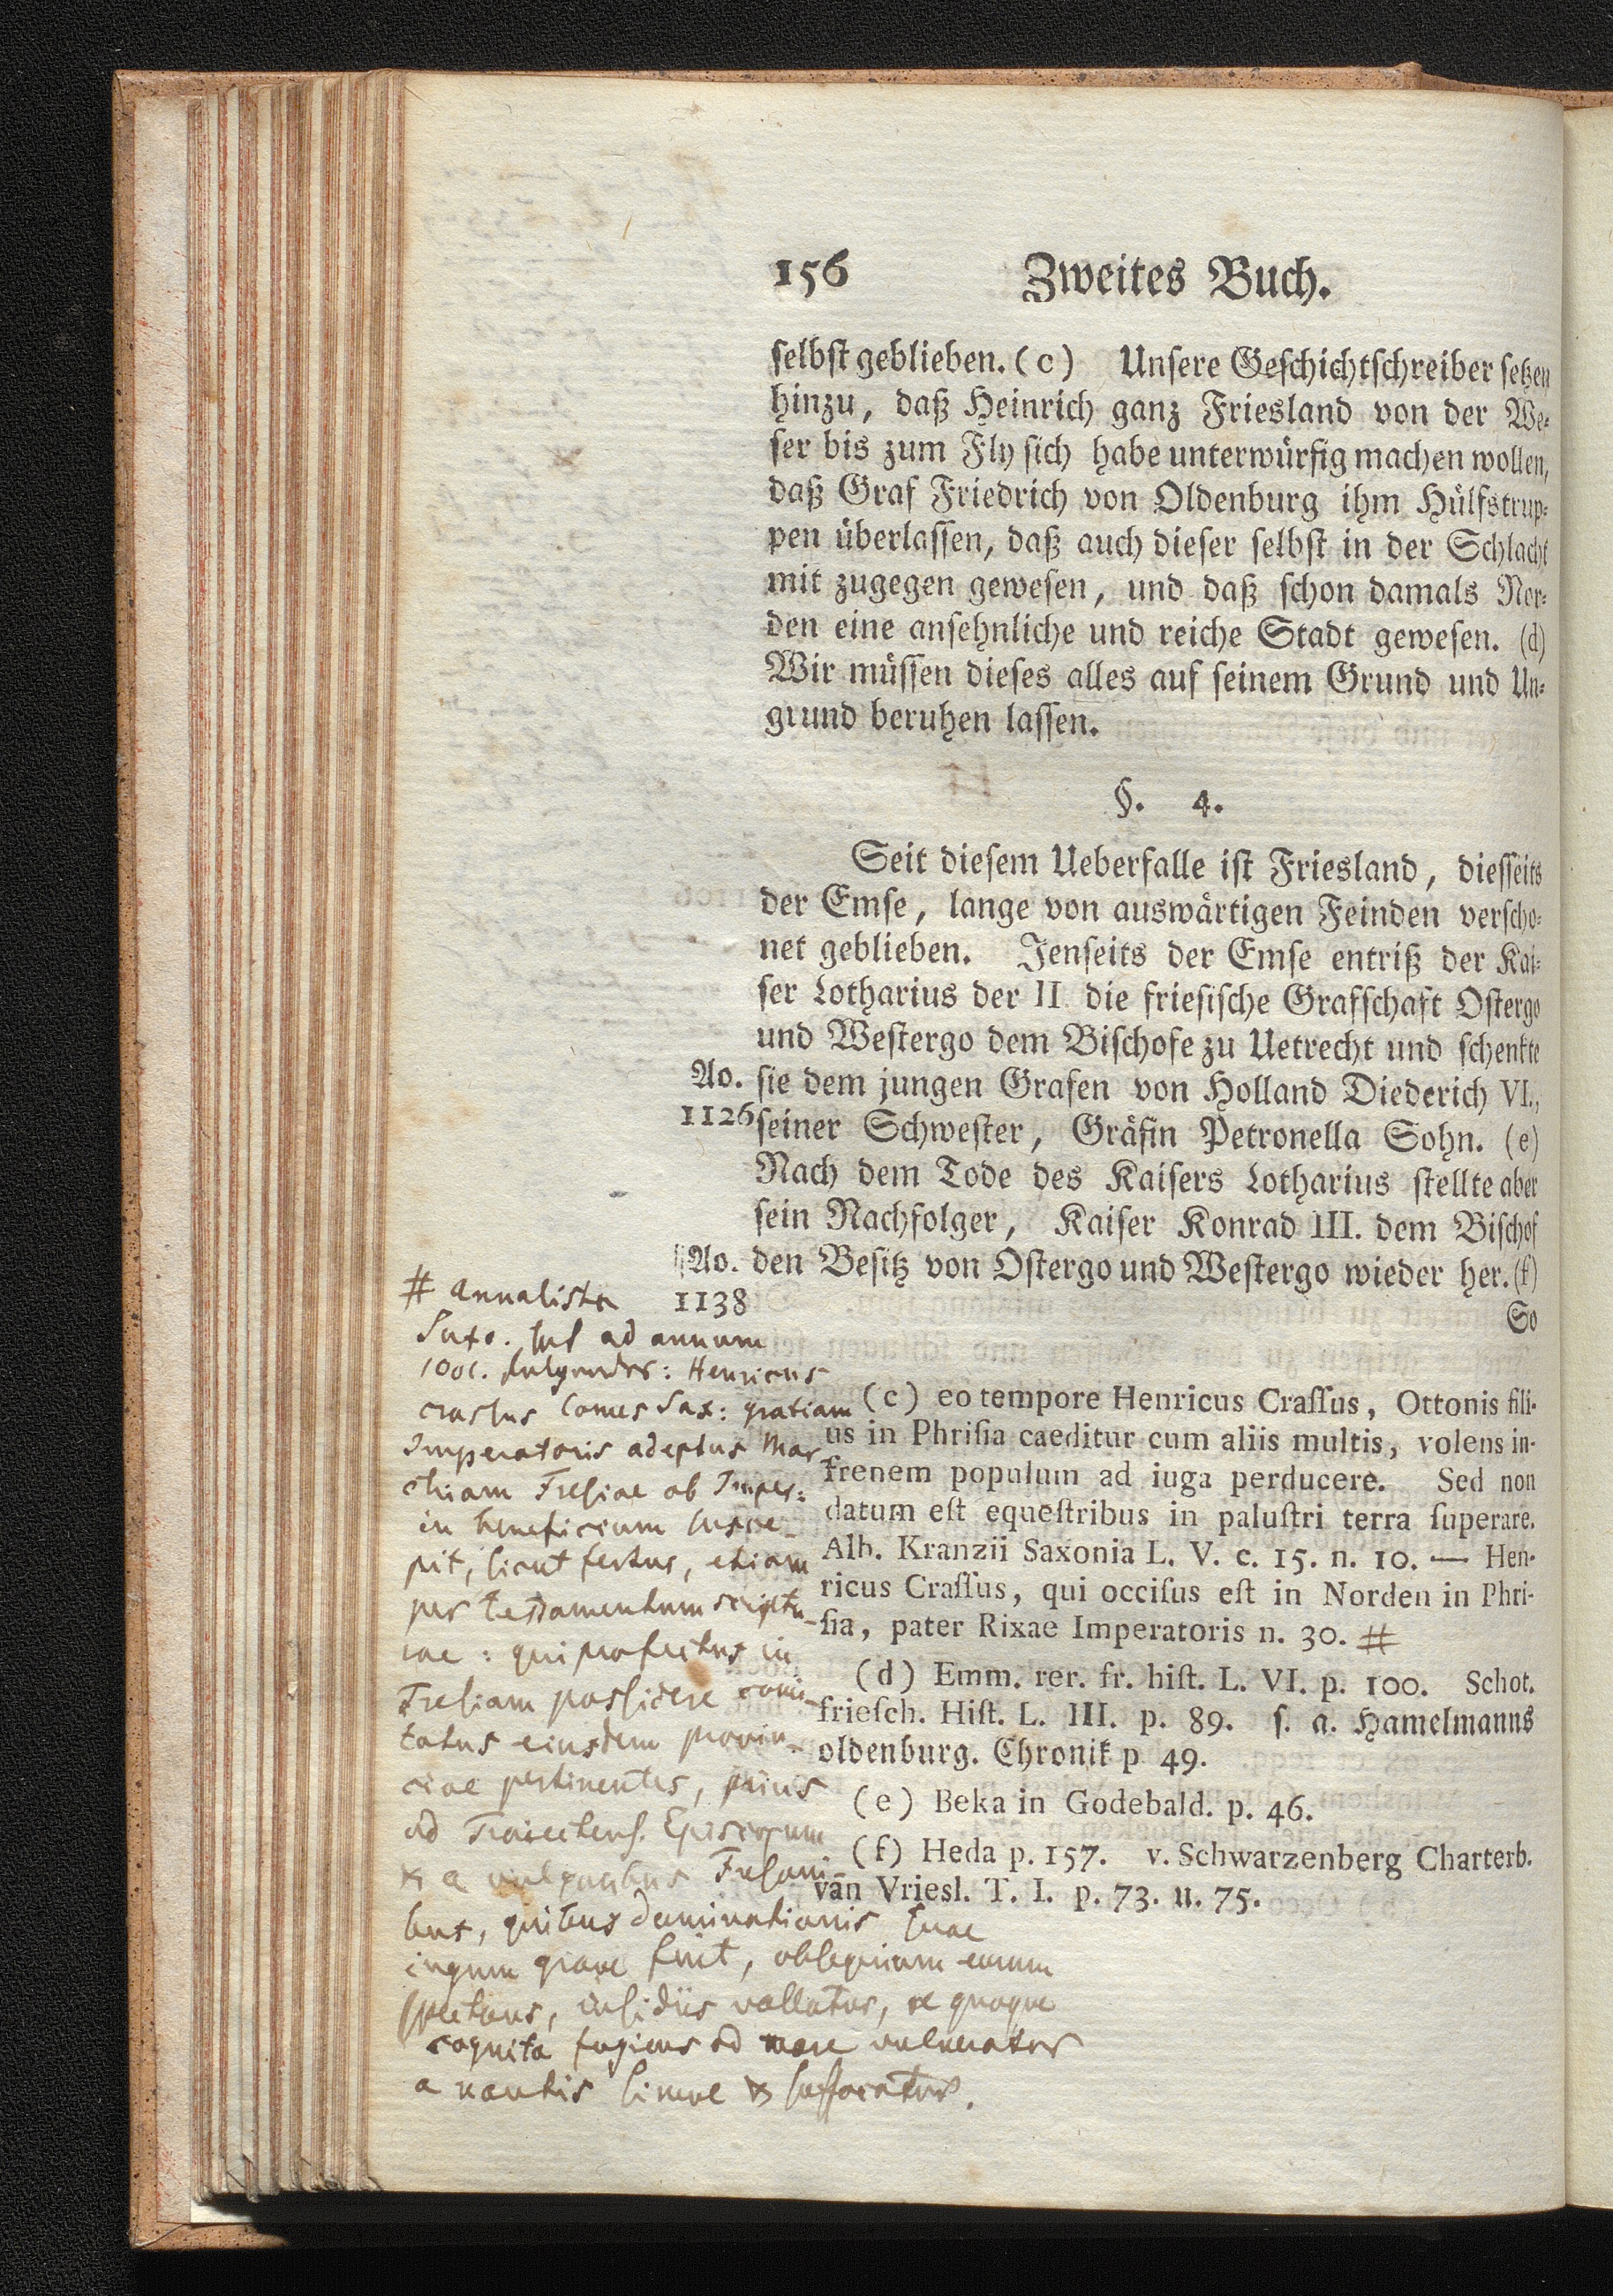 156 Zweites Buch.
selbst geblieben. (c) Unsere Geschichtschreiber setzen
hinzu, daß Heinrich ganz Friesland von der We-
ser bis zum Fly sich habe unterwürfig machen wollen,
daß Graf Friedrich von Oldenburg ihm Hülfstrup-
pen überlassen, daß auch dieser selbst in der Schlacht
mit zugegen gewesen, und daß schon damals Nor-
den eine ansehnliche und reiche Stadt gewesen. (d)
Wir müssen dieses alles auf seinem Grund und Un-
grund beruhen lassen.
§. 4.
Seit diesem Ueberfalle ist Friesland, diesseits
der Emse, lange von auswärtigen Feinden verscho-
net geblieben. Jenseits der Emse entriß der Kai-
ser Lotharius der II die friesische Grafschaft Ostergo
und Westergo dem Bischofe zu Uetrecht und schenkte
Ao. sie dem jungen Grafen von Holland Diederich VI.,
1126 seiner Schwester, Gräfin Petronella Sohn. (e)
Nach dem Tode des Kaisers Lotharius stellte aber
sein Nachfolger, Kaiser Konrad III. dem Bischof
Ao. den Besitz von Ostergo und Westergo wieder her. (f)
1138
So
(c) eo tempore Henricus Crassus, Ottonis fili-
us in Phrisia caeditur cum aliis multis, volens in-
frenem populum ad iuga perducere. Sed non
datum est equestribus in palustri terra superare.
Alb. Kranzii Saxonia L. V. c. 15. n. 10. — Hen-
ricus Crassus, qui occisus est in Norden in Phri-
sia, pater Rixae Imperatoris n. 30. #
(d) Emm. rer. fr. hist. L. VI. p. 100. Schot.
friesch. Hist. L. III. p. 89. s. a. Hamelmanns
oldenburg. Chronik p 49.
(e) Beka in Godebald. p. 46.
(f) Heda p. 157. v. Schwarzenberg Charterb.
van Vriesl. T. I. p. 73. u. 75.
# Annalista
Saxo. ad annum
Henricus
crassus Comes Sax: gratiam
Imperatoris adeptus Mar
chiam Fresiae ab Imper:
in beneficium susce-
pit, sicut fertur, etiam
per testamentum scriptu-
rae: qui profectus in
Fresiam possidere comi-
tatus eiusdem provin-
ciae pertinentes, prius
ad Traiectens. Episcopum
& a vulgaribus Fresoni-
bus, quibus dominationis suae
iugum grave fuit, obsequium eorum
spectans, insidiis vallatur, re quoque
cognita fugiens ad mare vulneratur
a nautis simul & suffocatur.